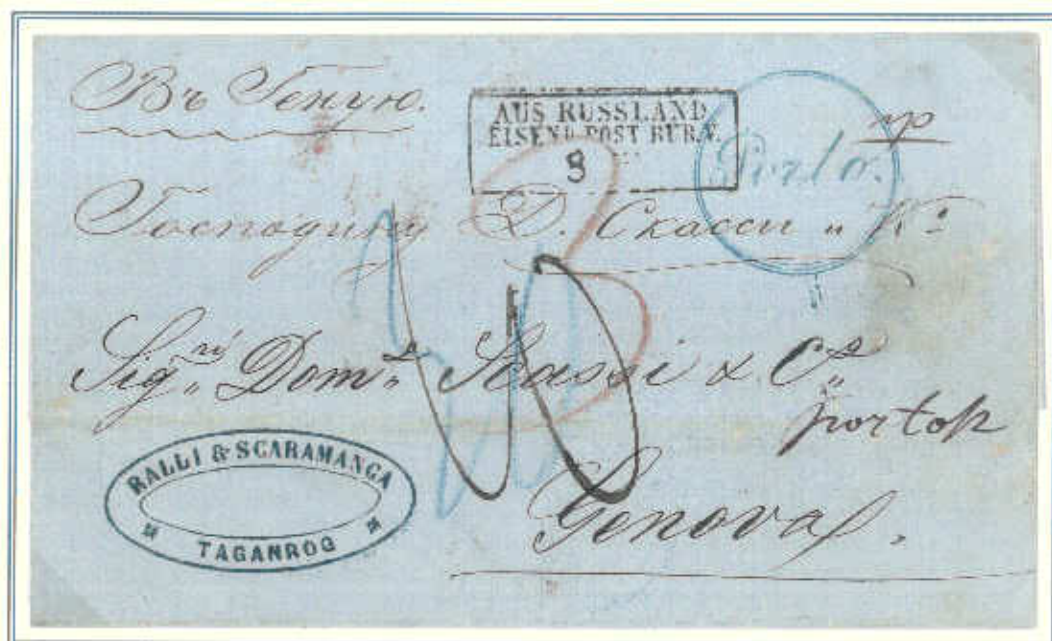 Въ Геную.
AUS RUSSLAND
EISENB. POST BUR. V.
8
Porto.
Господину Д. Скасси и К°
Sigri Domco Scassi & Co
porto
Genova.
RALLI & SCARAMANGA
TAGANROG